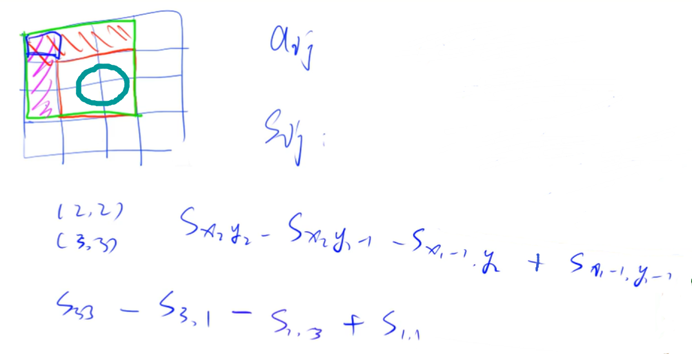 aij
Sij:
(2,2)
(3,3)
Sx₂y₂ - Sx₂y₁-1 - Sx₁-1,y₂ + Sx₁-1,y₁-1
S33 - S3,1 - S1,3 + S1,1